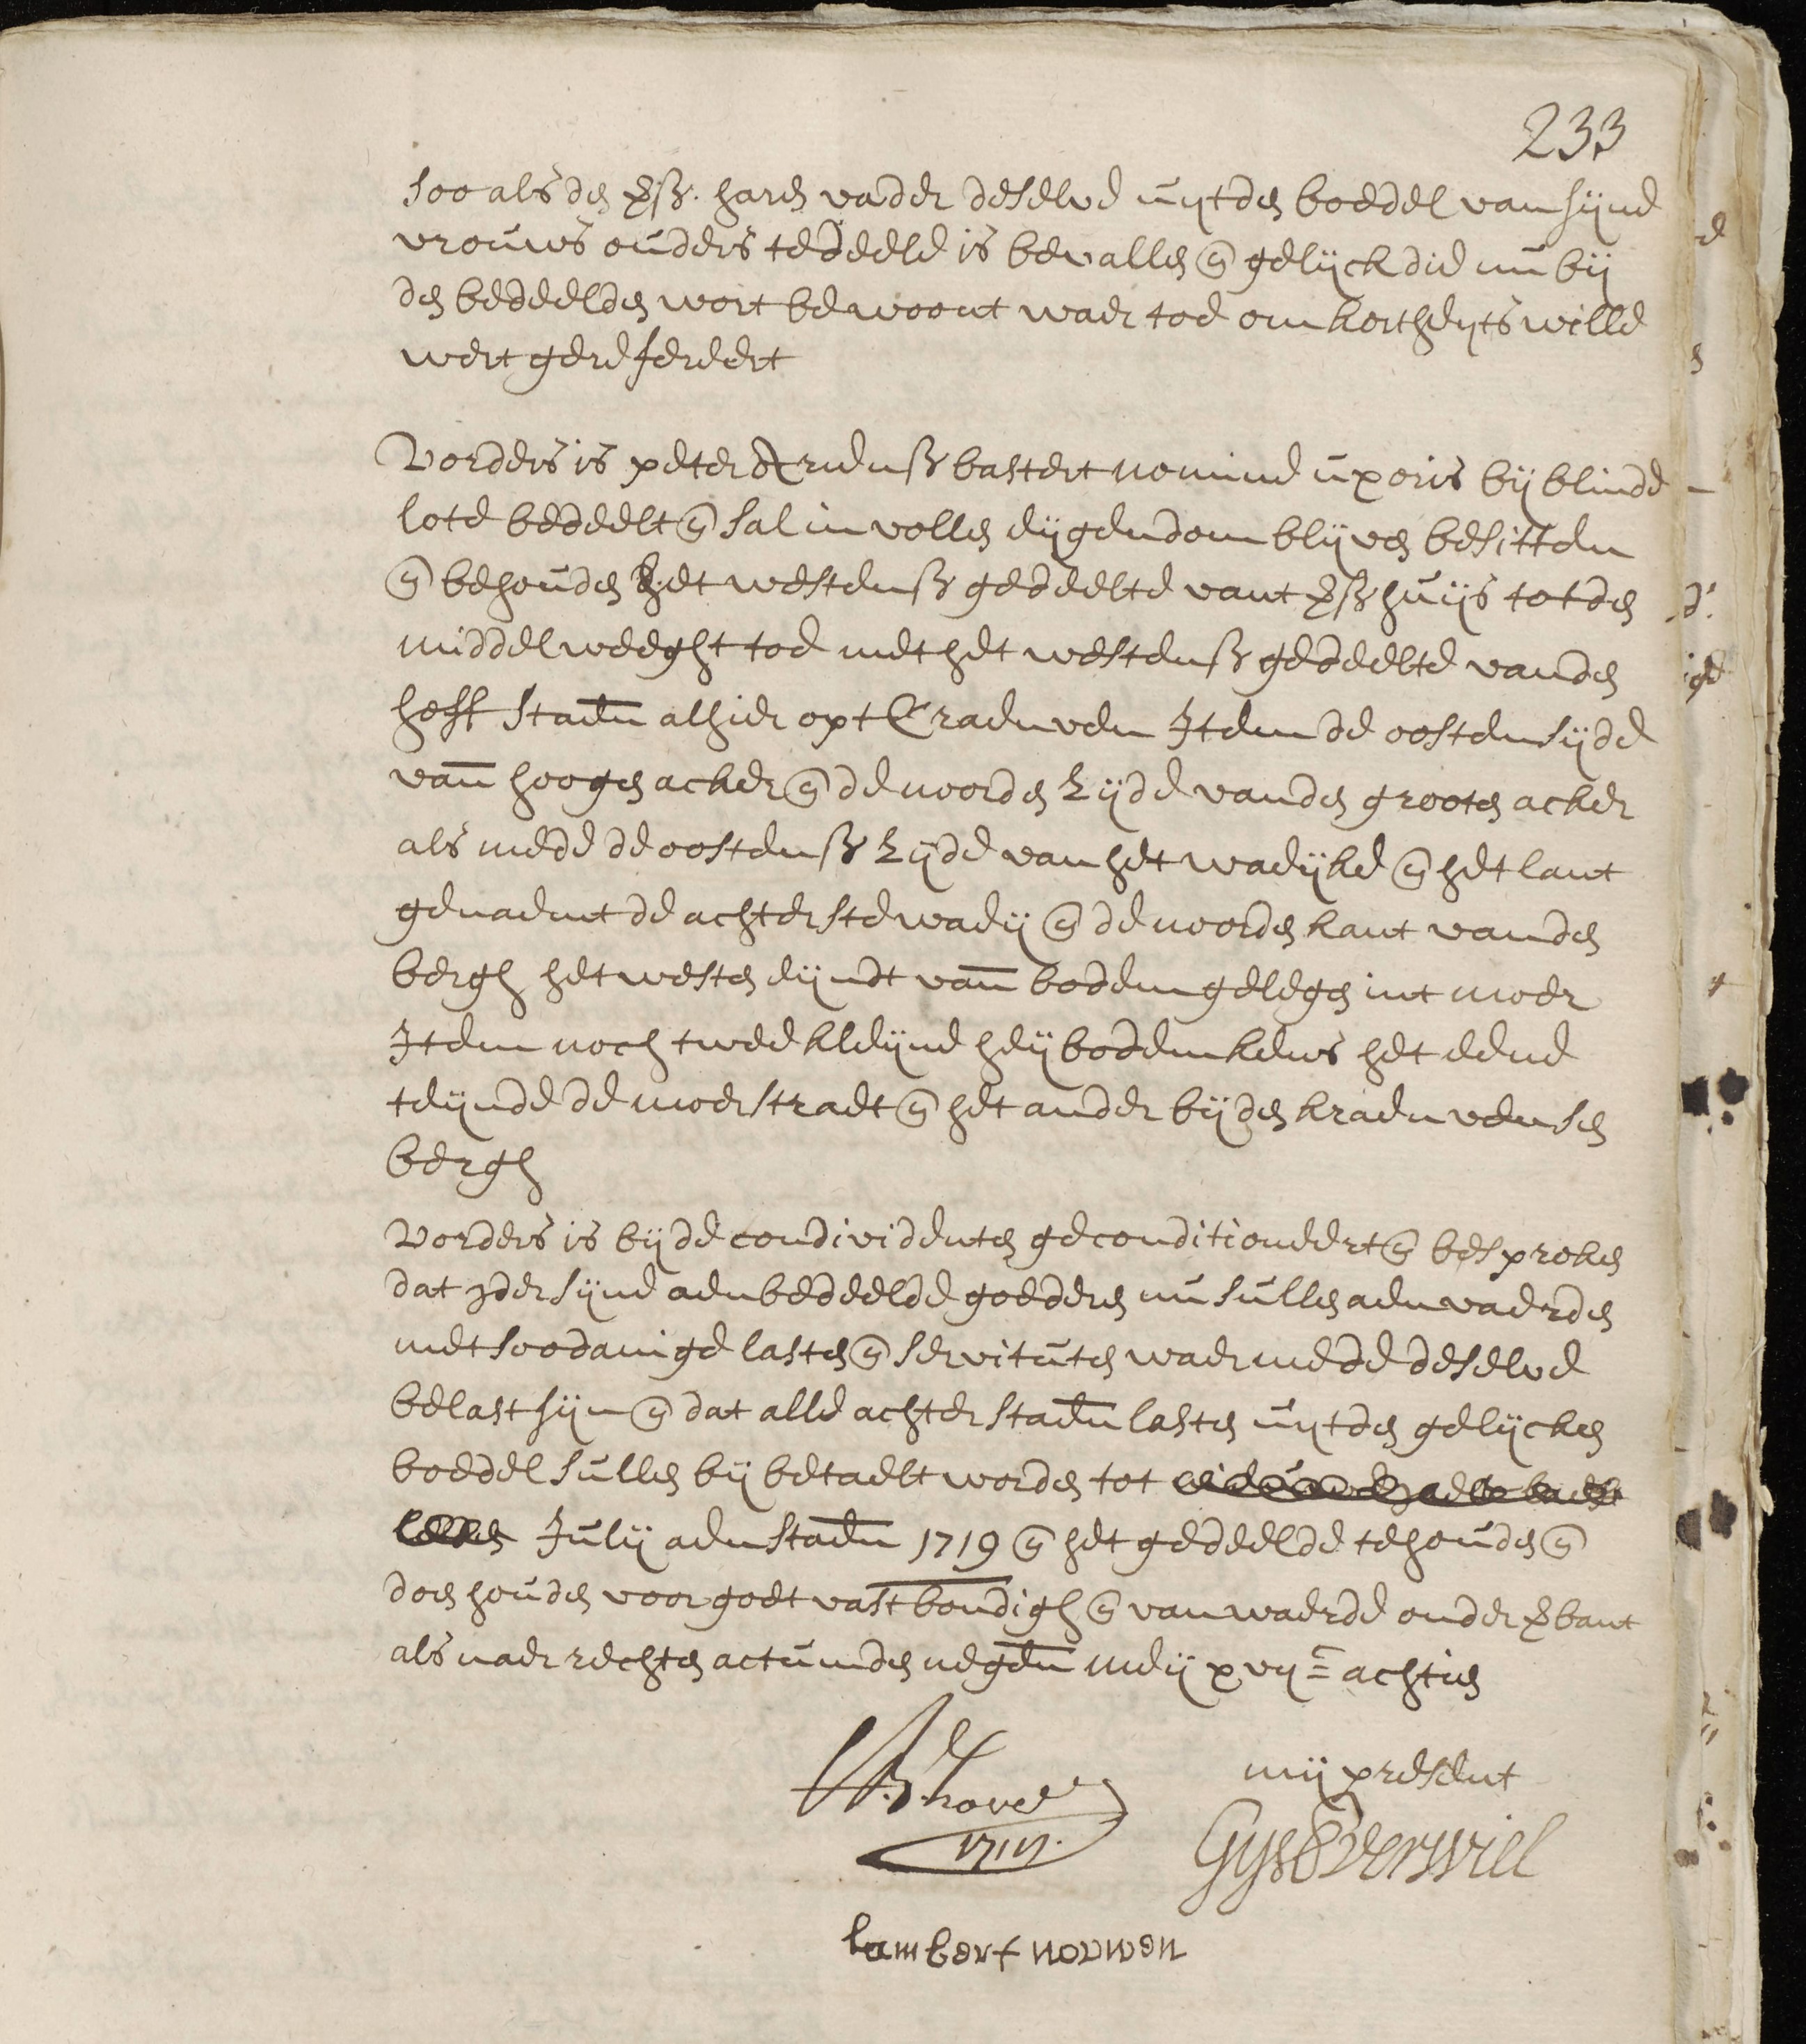 233
soo als den vs. haren vader deselve uijt den boedel van sijne
vrouws ouders te deele is bevallen en gelijck die nu bij
den bedeelden wort bewoont waer toe om kortheijts wille
wert gerefereert
Vorders is peter bastert nomine uxoris bij blinde
lote bedeelt en sal in vollen eijgendom blijven besitten
en behouden het westense gedeelte vant vs huijs tot den
middelweeght toe met het westense gedeelte vanden
hoff staen alhier opt Craenven Item de oosten sijde
van hoogen acker en de noorden zijde vanden grooten acker
als mede de oostense zijde van het waeijke en het lant
genaemt de achterste waeij en de noorden kant vanden
bergh het westen eijndt van bodem gelegen int moer
Item noch twee kleijne heijbodemkens het eene
teijnde de moerstraet en het ander bij den kraenvensen
bergh
Vorders is bij de condividenten geconditioneert en besproken
dat ider sijne aenbedeelde goederen nu sullen aenvaerden
met soodanige lasten en servituten waermede deselve
belast sijn en dat alle achterstaen lasten uijt den gelijcken
boedel sullen bij betaelt worden tot
Julij aenstaen 1719 en het gedeelde te houden en
doen houden voor goet vast bondigh en van waerde onder vbant
als naer rechten actum den negen meij xvij c achtien
mij present
Hove
1719.
Gijsb Verwiel
lambert nouwen